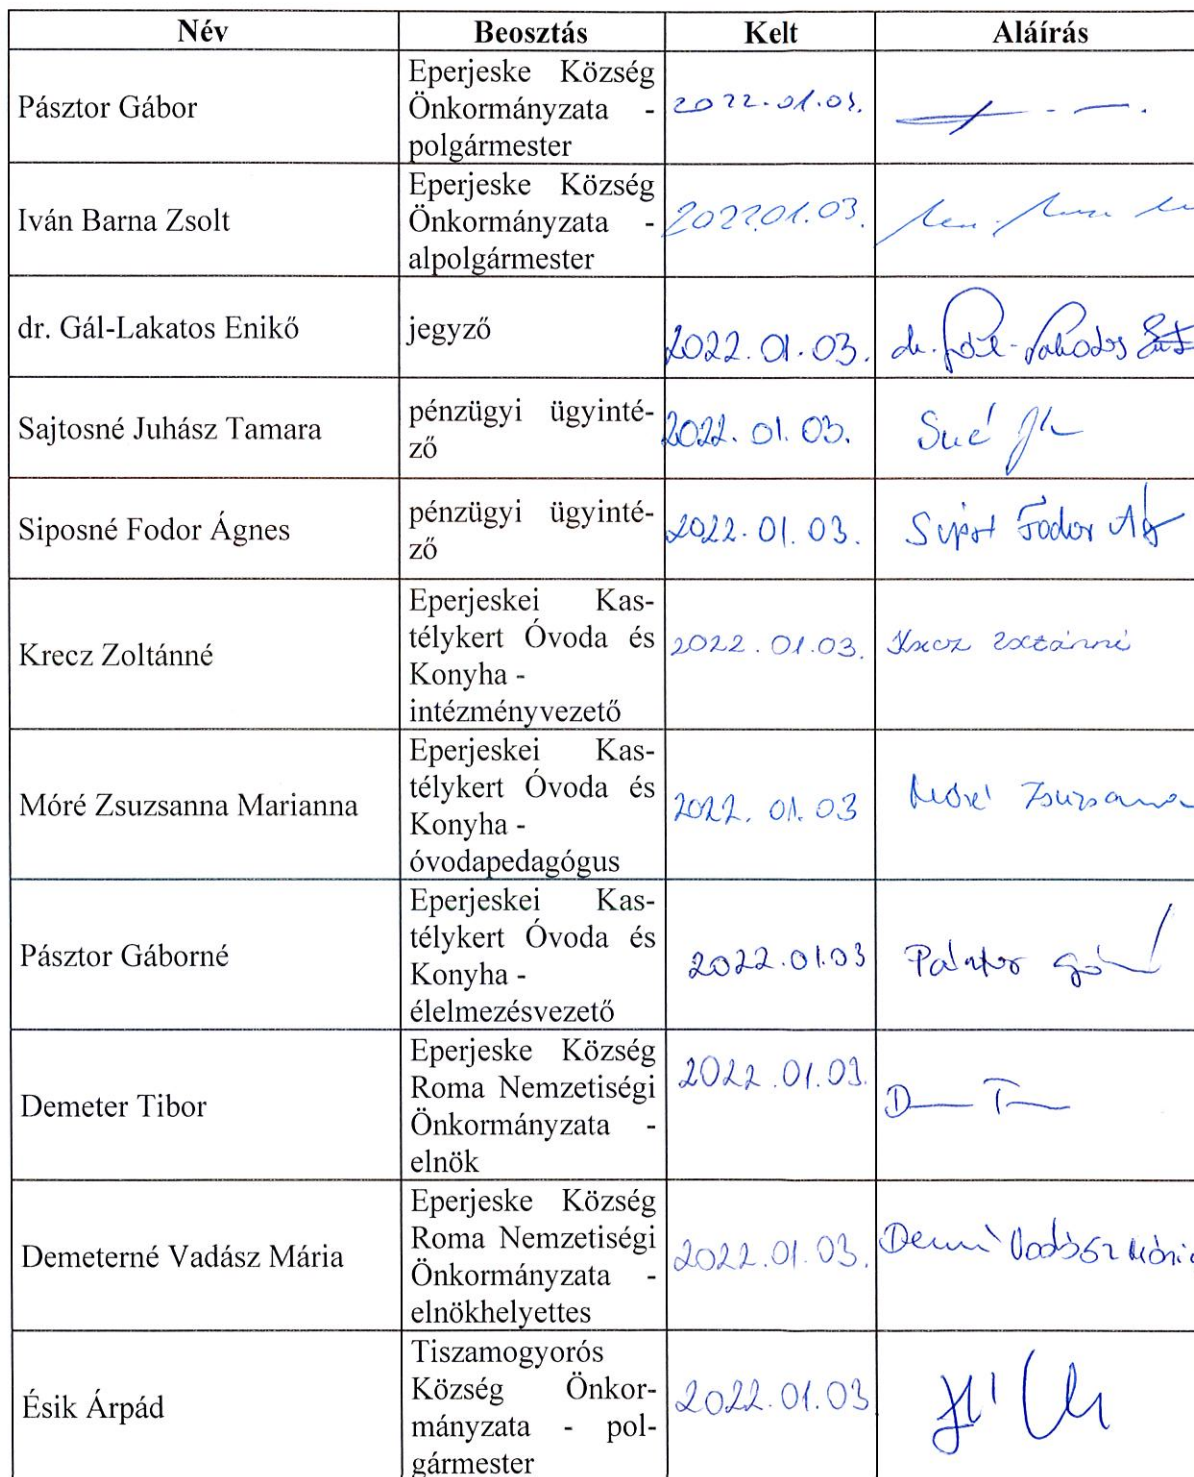 Név Beosztás Kelt Aláírás
Pásztor Gábor
Eperjeske Község
Önkormányzata -
polgármester
2022.01.03.
Iván Barna Zsolt
Eperjeske Község
Önkormányzata -
alpolgármester
2022.01.03.
dr. Gál-Lakatos Enikő
jegyző
2022.01.03.
dr. Gál-Lakatos
Sajtosné Juhász Tamara
pénzügyi ügyinté-
ző
2022.01.03.
Siposné Fodor Ágnes
pénzügyi ügyinté-
ző
2022.01.03.
Fodor
Krecz Zoltánné
Eperjeskei Kas-
télykert Óvoda és
Konyha -
intézményvezető
2022.01.03.
Krecz Zoltánné
Móré Zsuzsanna Marianna
Eperjeskei Kas-
télykert Óvoda és
Konyha -
óvodapedagógus
2022.01.03
Móré Zsuzsanna
Pásztor Gáborné
Eperjeskei Kas-
télykert Óvoda és
Konyha -
élelmezésvezető
2022.01.03
Pásztor
Demeter Tibor
Eperjeske Község
Roma Nemzetiségi
Önkormányzata -
elnök
2022.01.03.
Demeterné Vadász Mária
Eperjeske Község
Roma Nemzetiségi
Önkormányzata -
elnökhelyettes
2022.01.03.
Vadász Mária
Ésik Árpád
Tiszamogyorós
Község Önkor-
mányzata - pol-
gármester
2022.01.03